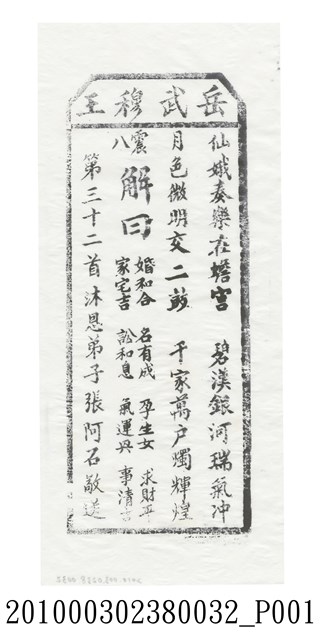 岳武穆王
仙娥奏樂在蟾宮　碧漢銀河瑞氣冲
月色微明交二鼓　千家萬戶燭輝煌
震八
解曰
婚和合　名有成　孕生女　求財平
家宅吉　訟和息　氣運興　事清吉
第三十二首沐恩弟子張阿石敬送
201000302380032_P001